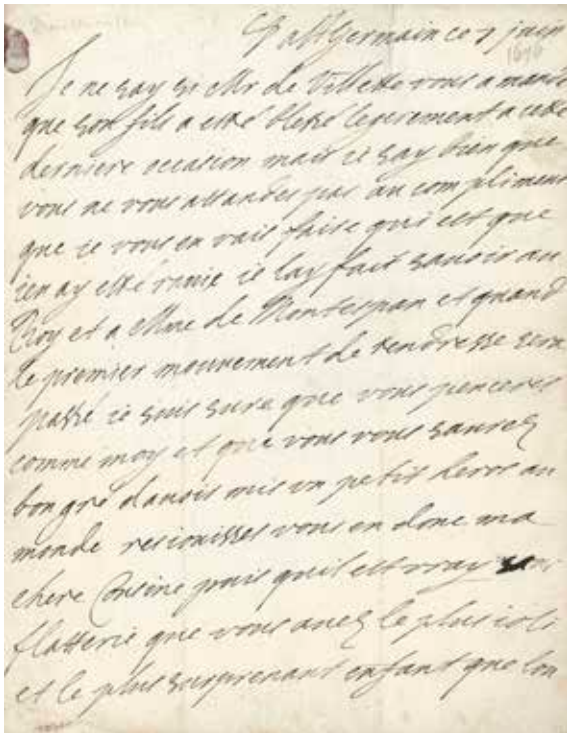 a St Germain ce 7 juin
1676
Je ne say si Mr de Villette vous a mandé
que son fils a esté blessé legerement a cette
derniere occasion mais ie say bien que
vous ne vous attandes pas au compliment
que ie vous en vais faire qui est que
ien ay esté ravie ie lay fait savoir au
Roy et a Mme de Montespan et quand
le premier mouvement de tendresse sera
passé ie suis sure que vous penceres
comme moy et que vous vous saurez
bon gré davoir mis un petit heros au
monde resiouisses vous en donc ma
chere Cousine puis quil est vray sans
flatterie que vous avez le plus ioli
et le plus surprenant enfant que lon